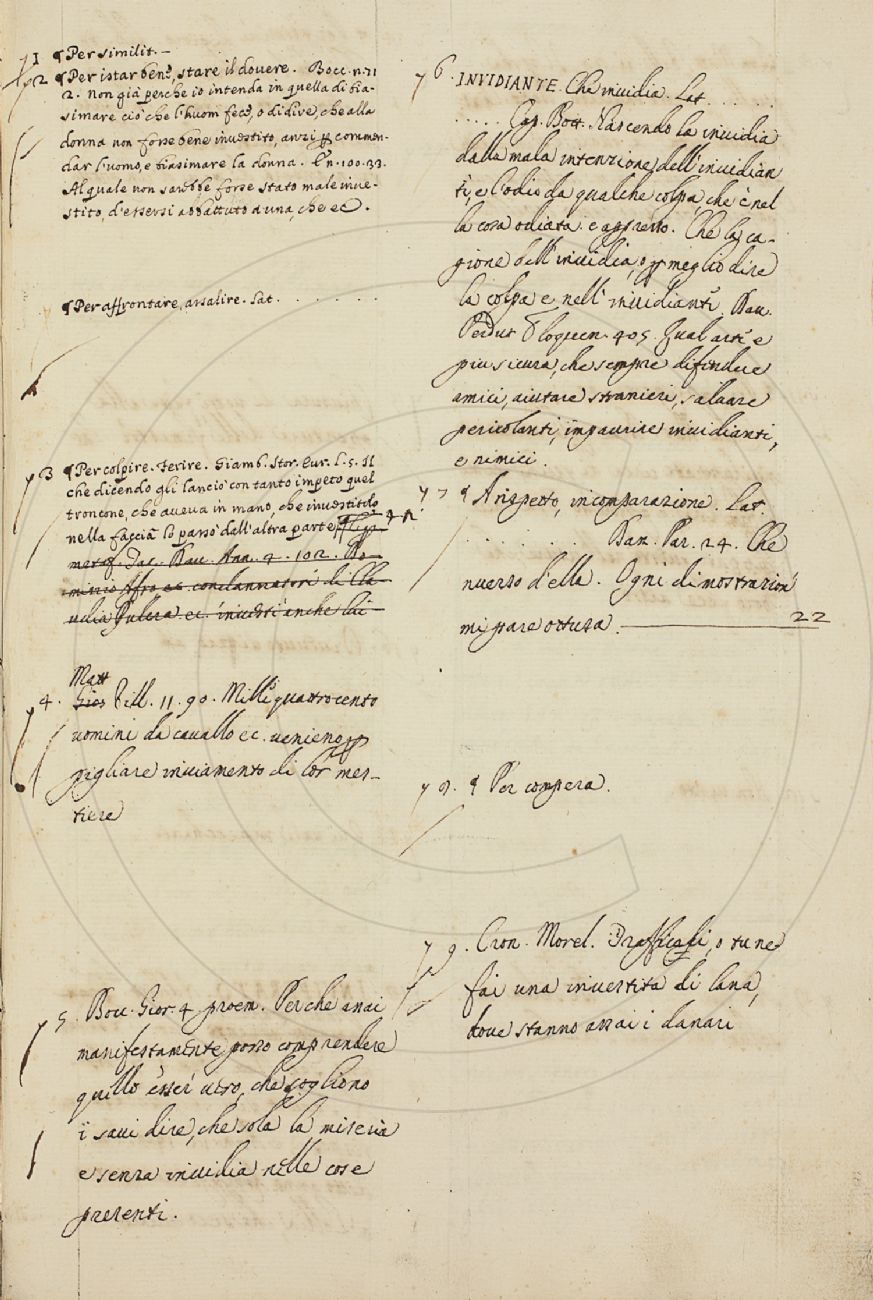 1 ¶ Per similit. —
2 ¶ Per istar bene, stare il dovere. Bocc. n. 71
2. non già perche io intenda in quella di bia-
simare ciò che l'huom fece, o di dire, che alla
donna non fosse bene investito, anzi per commen-
dar l'uomo, e biasimare la donna. En. 100. 33.
Al quale non sarebbe forse stato male inve-
stito, d'essersi abbattuto a una, che ec.
¶ Per affrontare, assalire. Lat. . . . . . .
3 ¶ Per colpire. Ferire. Giamb. Stor. Eur. L. 5. Il
che dicendo gli lanciò con tanto impeto quel
troncone, che aveva in mano, che investitolo
nella faccia lo passò dall'altra parte
metaf. Tac. Dav. Ann. 4. 102. Do-
mizio Afro ec. condannatosi di Cla-
udia Pulcra ec. investì anche lui
Matt
4. Gios Vill. 11. 90. Mille quattrocento
uomini da cavallo ec. venieno per
pigliare inviamento di lor mes-
tiere
5. Bocc. Gior. 4 proem. Perche assai
manifestamente posso comprendere
quello esser vero, che sogliono
i savi dire, che sola la miseria
e senza invidia nelle cose
presenti.
6. INVIDIANTE. Che invidia. Lat. . . . . .
. . . . . Cap. Bott. Nascendo la invidia
dalla mala intenzione dell'invidian
ti, e l'odio da qualche colpa, che è nel
la cosa odiata. e appresso. Che la ca-
gione dell'invidia, o per meglio dire
la colpa e nell'invidiante. Dav.
Perdut eloquen. 405. Qual arte e
piu sicura, che sempre difendere
amici, aiutare stranieri, salvare
pericolanti, impaurire invidianti,
e nimici.
7 ¶ A rispetto, in comparazione. Lat.
. . . . . . Dan. Par. 24. Che
nverso d'ella. Ogni dimostrazion
mi pare ottusa. 22
8. ¶ Per compera.
9. Cron. Morel. Trafficasi, o tu ne
fai una investita di lana,
dove stanno assai i danari